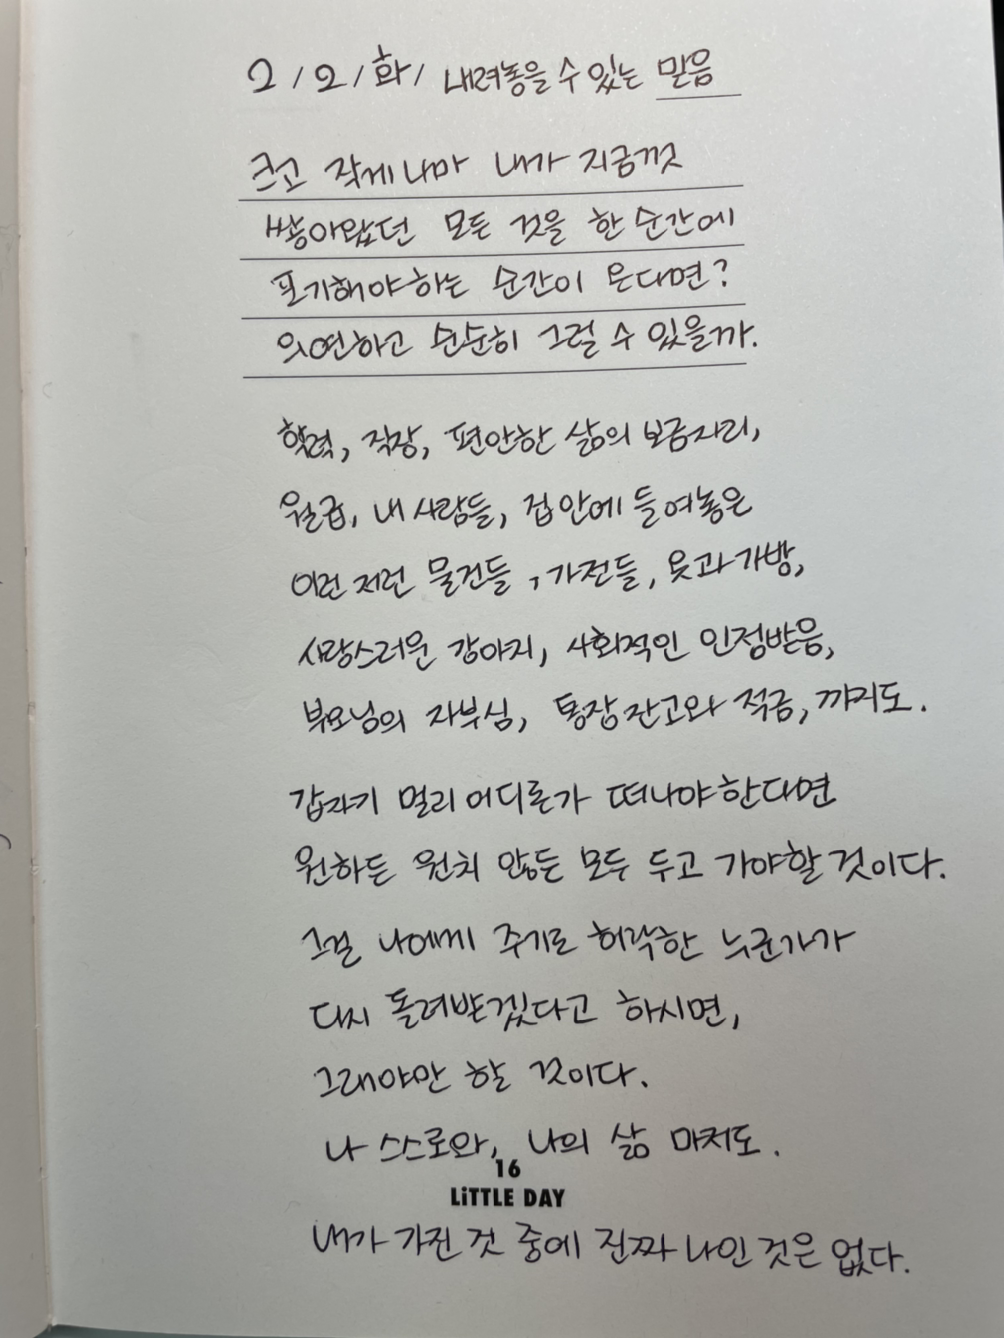 2/2/화/ 내려놓을 수 있는 믿음
크고 작게나마 내가 지금껏
쌓아왔던 모든 것을 한 순간에
포기해야하는 순간이 온다면?
의연하고 순순히 그럴 수 있을까.
학력, 직장, 편안한 삶의 보금자리,
월급, 내 사람들, 집 안에 들여놓은
이런 저런 물건들, 가전들, 옷과 가방,
사랑스러운 강아지, 사회적인 인정받음,
부모님의 자부심, 통장 잔고와 적금, 까지도.
갑자기 멀리 어디론가 떠나야한다면
원하든 원치 않든 모두 두고 가야할 것이다.
그걸 나에게 주기로 허락한 누군가가
다시 돌려받겠다고 하시면,
그래야만 할 것이다.
나 스스로와, 나의 삶 마저도.
16
LiTTLE DAY
내가 가진 것 중에 진짜 나인 것은 없다.